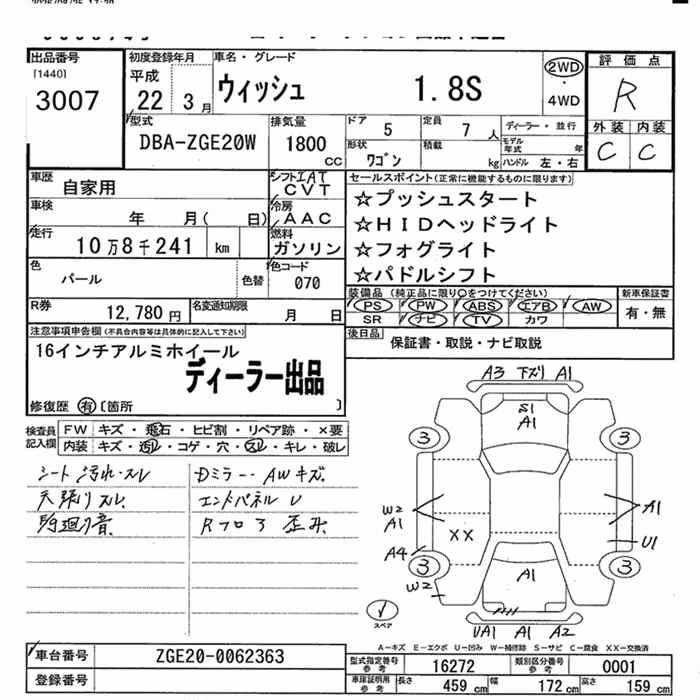 出品番号 [1440] 3007
初度登録年月 平成 22年 3月
車名・グレード ウィッシュ 1.8S
2WD・4WD
評価点 R
外装 C 内装 C
型式 DBA-ZGE20W
排気量 1800 cc
ドア 5 定員 7人
形状 ワゴン 積載 kg
ディーラー・並行
モデル年式 年
ハンドル 左・右
車歴 自家用
シフト IAT CVT
車検 年 月( 日)
冷房 AAC
走行 10万8千241 km
燃料 ガソリン
色 パール 色替
色コード 070
R券 12,780円
名変通知期限 月 日
セールスポイント(正常に機能するものに限ります)
☆プッシュスタート
☆HIDヘッドライト
☆フォグライト
☆パドルシフト
装備品 (純正品に限り○をつけてください)
PS PW ABS エアB AW
SR ナビ TV カワ
新車保証書 有・無
後日品 保証書・取説・ナビ取説
注意事項申告欄(不具合内容等は具体的に記入して下さい)
16インチアルミホイール
ディーラー出品
修復歴 有 〔箇所 〕
検査員記入欄
FW キズ・飛石・ヒビ割・リペア跡・×要
内装 キズ・汚レ・コゲ・穴・スレ・キレ・破レ
シート汚れ・スレ
天張りスレ
Dミラー・AWキズ
エンドパネルU
A3 下ズリ A1
S1
A1
3 3
W2
A1
A1
XX
U1
A4
3 3
W2
A1
スペア
UA1 A1 A2
A-キズ E-エクボ U-凹み W-補修跡 S-サビ C-腐食 XX-交換済
車台番号 ZGE20-0062363
登録番号
型式指定番号 参考 16272
類別区分番号 参考 0001
車庫証明用 参考 長さ 459cm 幅 172cm 高さ 159cm